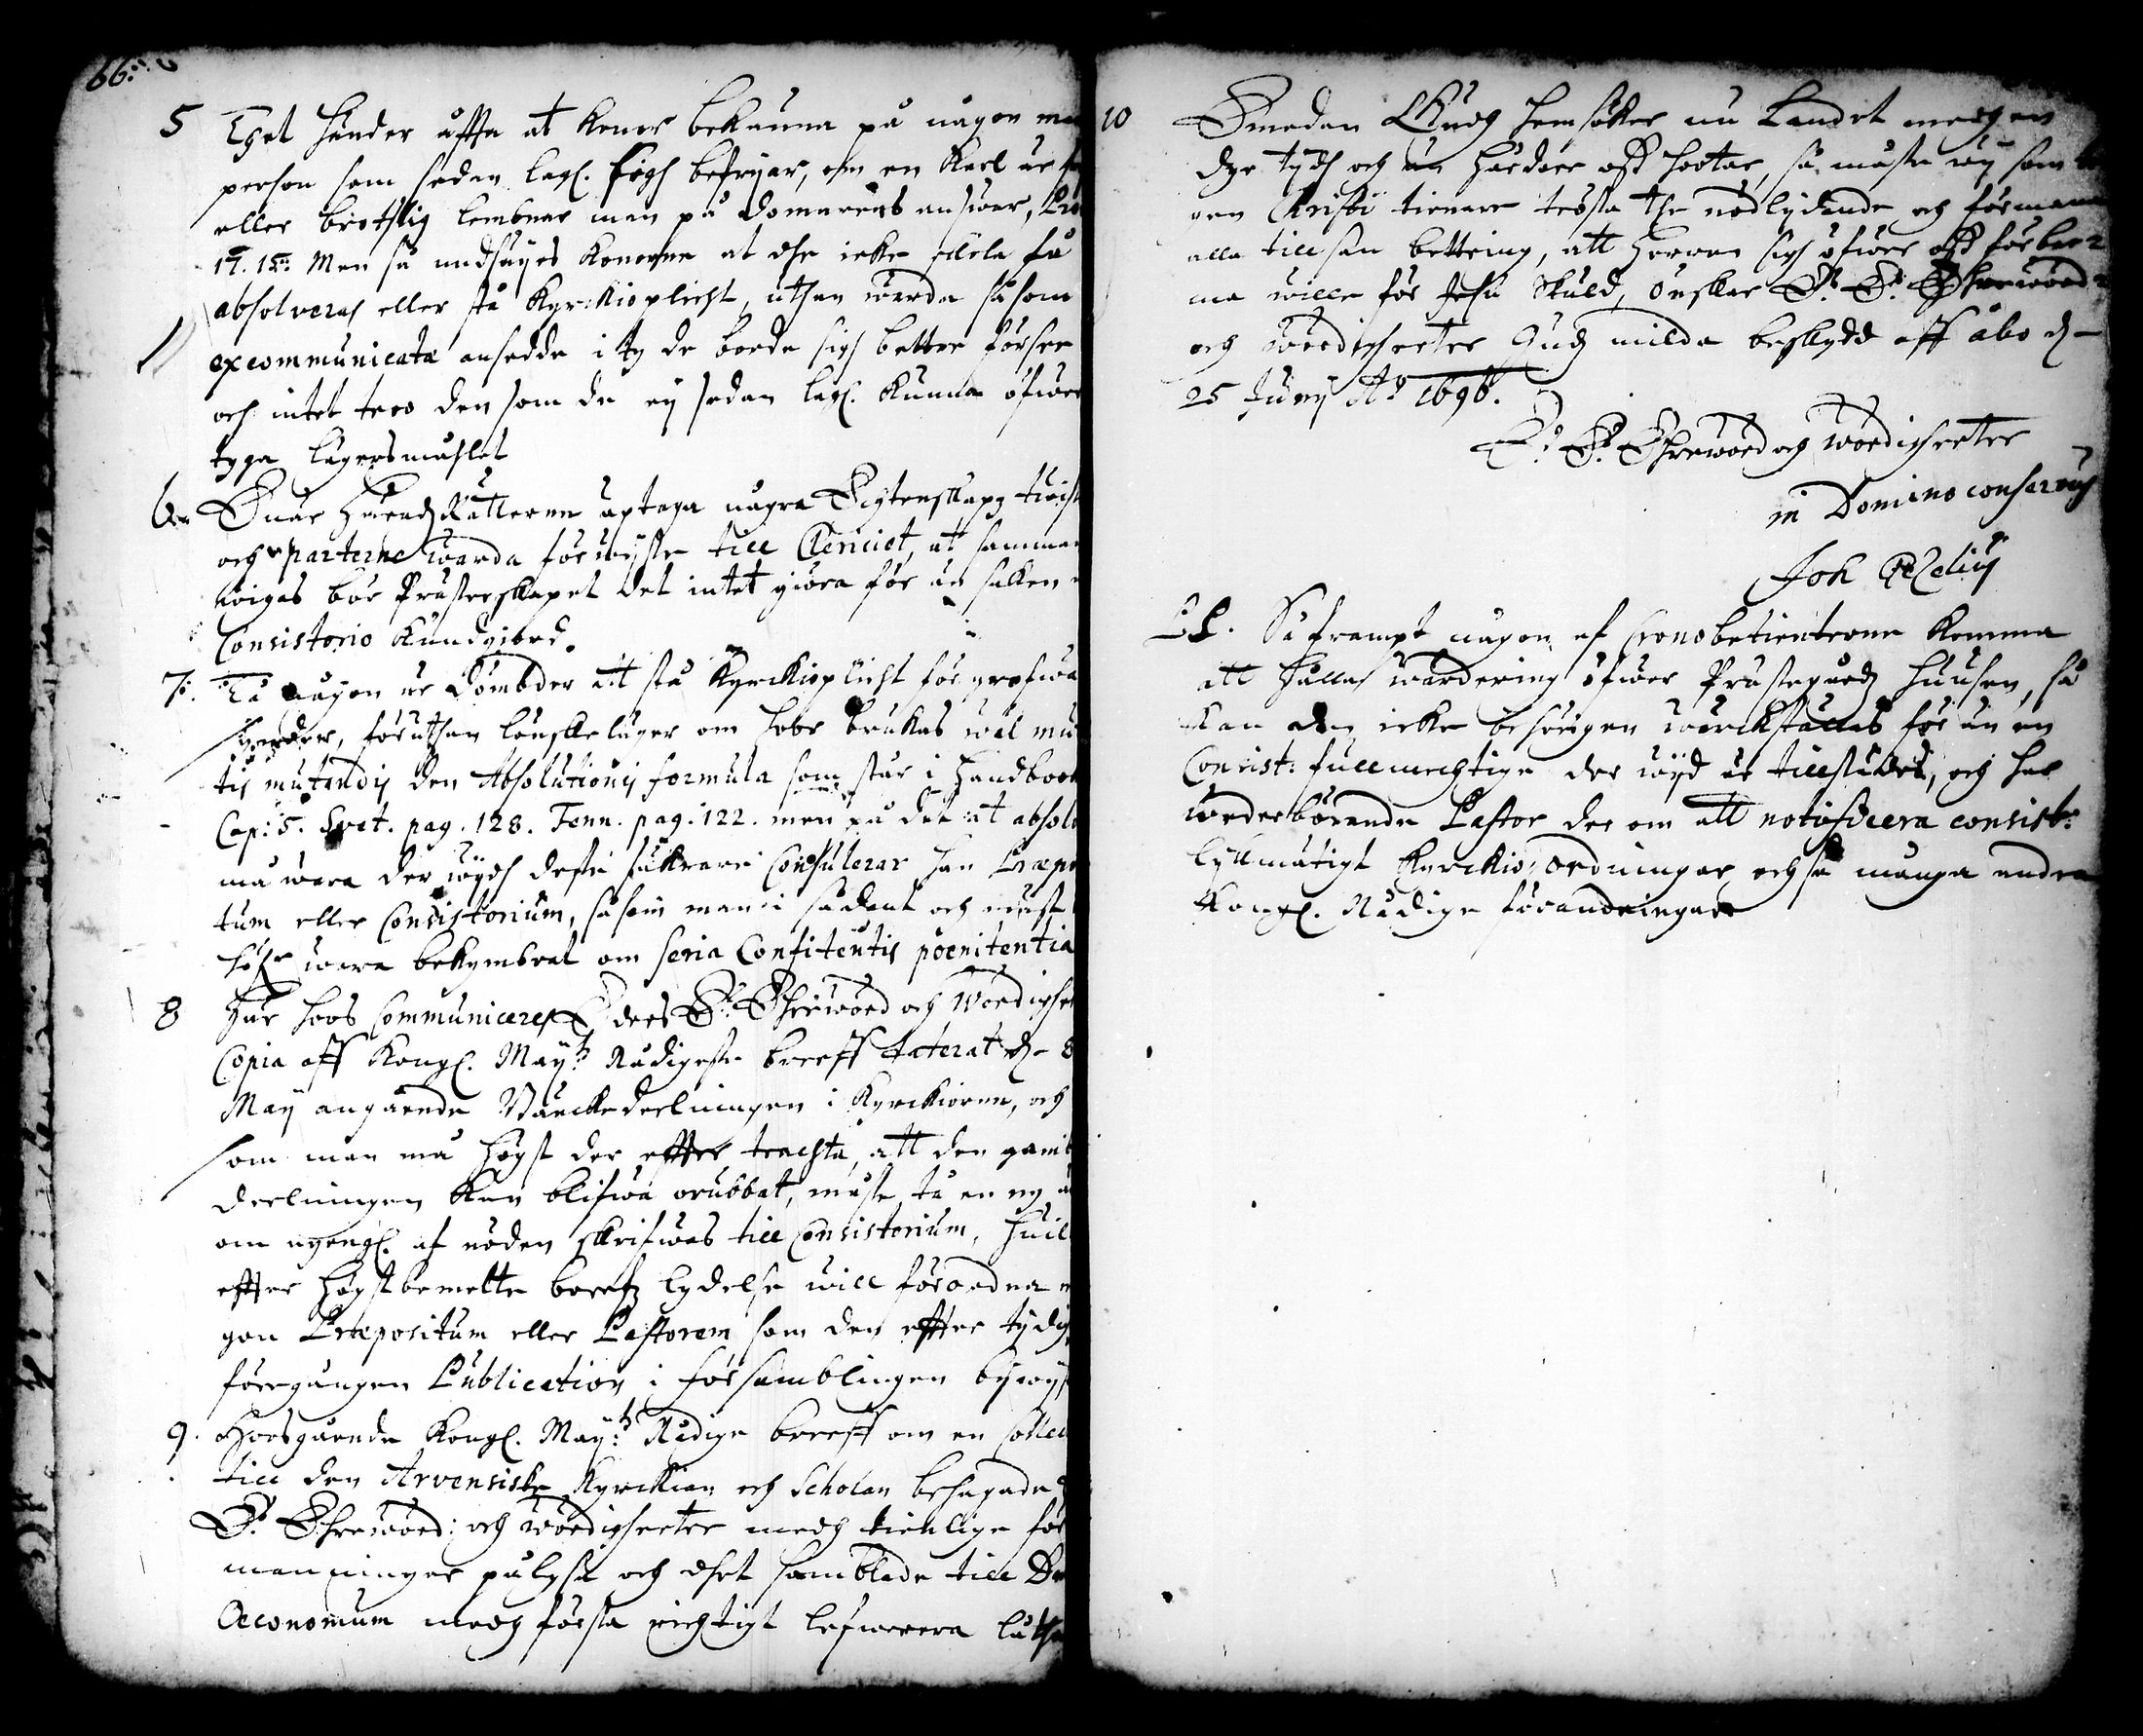 66.
5 Thet händer offta at konor bekänna på någon man
person som sedan lagl. sigh befryar, om en Karl är
eller brotslig lembnas man på domarens answar, Pro
17. 15: Men så undsäyes konorne at dhe icke skola få
absolveras eller stå Kyrkioplicht, uthan warda såsom
excommunicatæ ansedde i ty de borde sigh bettre förse
och intet troo den som de ey sedan lagl. kunna öfwer
tyga lägersmåhlet
6. Quar HäradzRätterne optaga några Ecktenskapz twist
och parterne warda förwyste till Clericiet, at samman
wigas bör Prästerskapet det intet giöra för än saken
Consistorio kundgiord.
7. Tå någon är dömbder att stå Kyrckioplicht för grofwa
synder, föruthan lönskeläger om hoor brukas wäl mu
tis mutandis den Absolutionis formula som står i Handbook
Cap: 5. Svet. pag. 128. Fenn. pag. 122. men på det at absol
må wara der wydh desto säkrare Consulerar han Præpo
tum eller Consistorium, såsom man i sådant och måst
högst wara bekymbrat om seria Confitentis poenitentia
8 Här hoos Communiceres Eders E. Ehrewörd och Wördighe
Copia aff Kongl. May:tz Nådigeste breeff daterat d. 8
May angående Bänckedeelningen i Kyrckiorne, och
som man må högst der effter trachta, att den gamb
deelningen kan blifwa orubbat, måste tå en ny
om ngongl. af nöden skrifwas till Consistorium, huil
effter högstbemelte breefz lydelse will förordna
gon Præpositum eller Pastorem som den effter tydig
föregången Publication i församblingen bywys
9. Hoosgående Kongl. May:tz Nådige breeff om en Collec
till den Arvensiske Kyrckian och Scholan behagade
E. Ehrewörd: och wördigheeter medh tienlige för
maninger pålysa och dhet samblade till
Oeconomum medh första richtigt lefwerera låtha
10 Emedan Gudh hemsöker nu Landet medh en
dyr tydh och än hårdare oss hootar, så måste wij som
gen Christi tienare trösta the nödlydande och förmana
alla till san bettring, att Herren sigh öfwer oss förbar-
ma wille för Jesu skuld, Önskar E. E. Ehrewörd
och wördigheeter Gudz milda beskydd aff åbo d.
25 Junij A:o 1696.
E. E. Ehrewörd och wördigheeter
in Domino conservus
Joh Gezelius
PS. Så frampt någon af Cronobetienterne komma
att hållas wärdering öfwer Prästegårdz huusen, så
kan den icke behörigen wärckställas för än en
Consist: fullmechtige der wyd är tillstädes, och har
wederbörande Pastor der om att notificera consist:
lykmätigt Kyrckio ordningar och så många andra
Kongl. Nådige förordningar